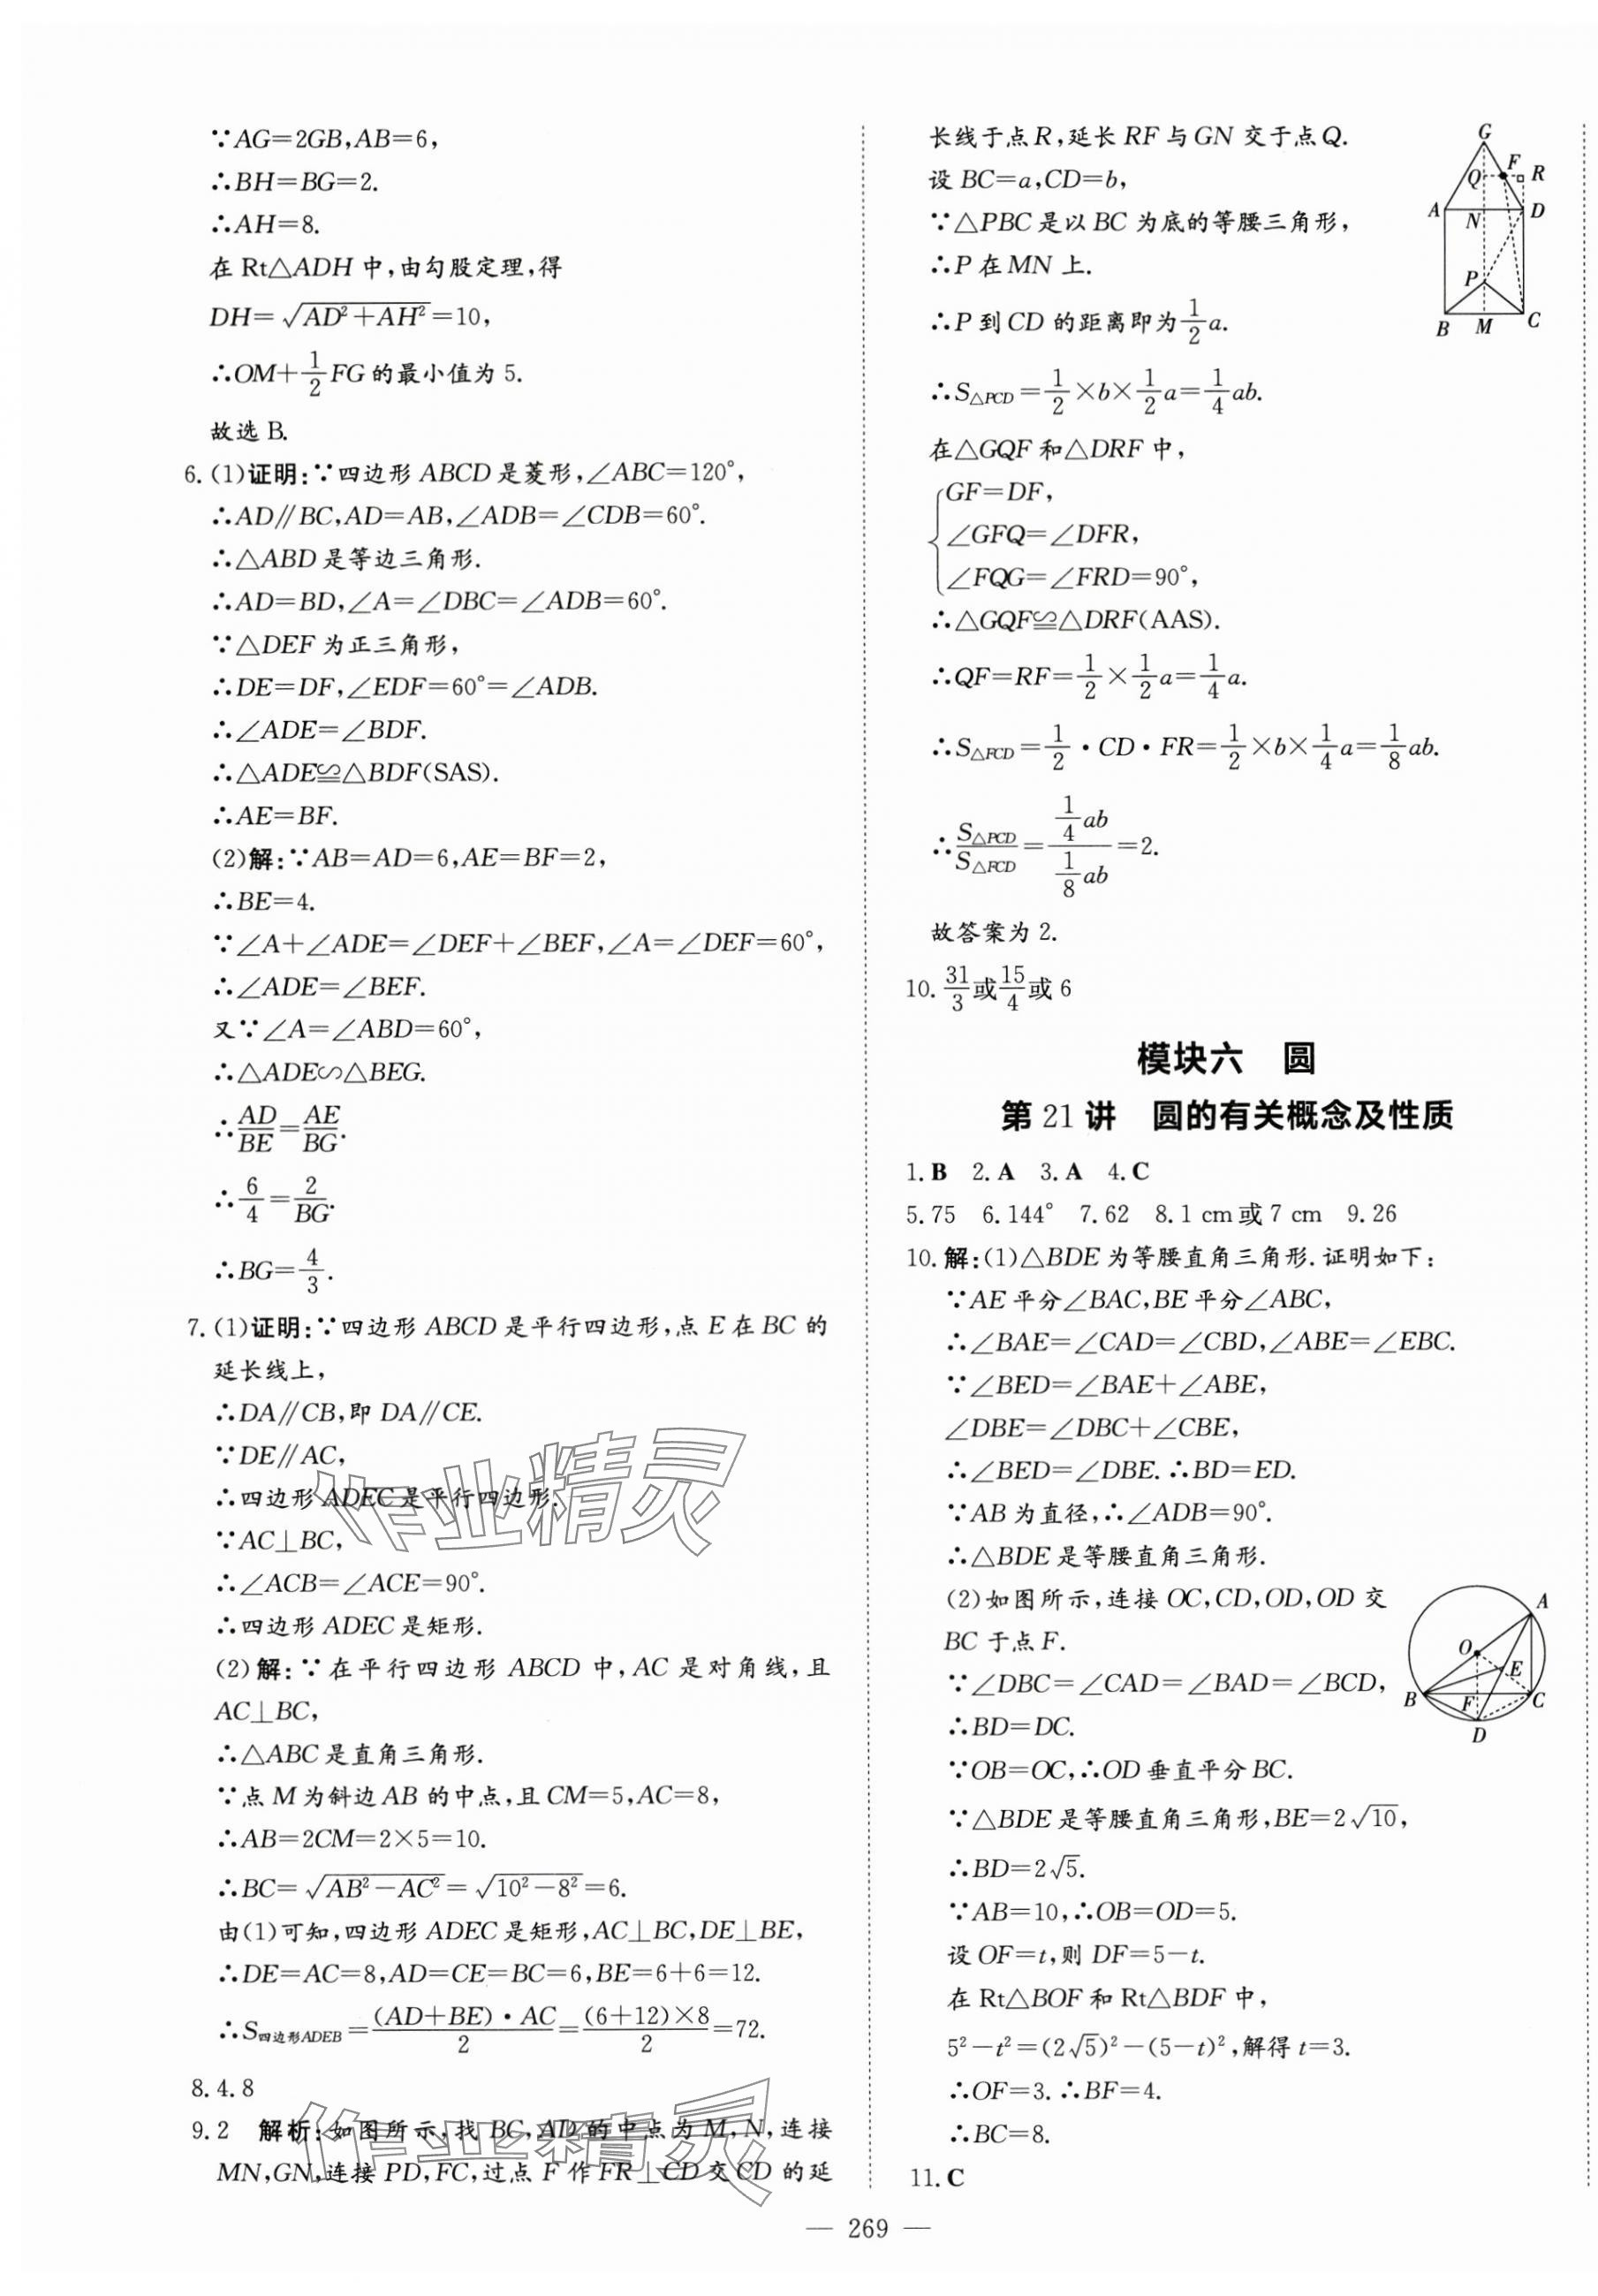 ∵AG=2GB,AB=6,
∴BH=BG=2.
∴AH=8.
在 Rt△ADH 中,由勾股定理,得
DH=√(AD²+AH²)=10,
∴OM+1/2 FG 的最小值为 5.
故选 B.
6.(1)证明:∵四边形 ABCD 是菱形,∠ABC=120°,
∴AD∥BC,AD=AB,∠ADB=∠CDB=60°.
∴△ABD 是等边三角形.
∴AD=BD,∠A=∠DBC=∠ADB=60°.
∵△DEF 为正三角形,
∴DE=DF,∠EDF=60°=∠ADB.
∴∠ADE=∠BDF.
∴△ADE≌△BDF(SAS).
∴AE=BF.
(2)解:∵AB=AD=6,AE=BF=2,
∴BE=4.
∵∠A+∠ADE=∠DEF+∠BEF,∠A=∠DEF=60°,
∴∠ADE=∠BEF.
又∵∠A=∠ABD=60°,
∴△ADE∽△BEG.
∴AD/BE=AE/BG.
∴6/4=2/BG.
∴BG=4/3.
7.(1)证明:∵四边形 ABCD 是平行四边形,点 E 在 BC 的
延长线上,
∴DA∥CB,即 DA∥CE.
∵DE∥AC,
∴四边形 ADEC 是平行四边形.
∵AC⊥BC,
∴∠ACB=∠ACE=90°.
∴四边形 ADEC 是矩形.
(2)解:∵在平行四边形 ABCD 中,AC 是对角线,且
AC⊥BC,
∴△ABC 是直角三角形.
∵点 M 为斜边 AB 的中点,且 CM=5,AC=8,
∴AB=2CM=2×5=10.
∴BC=√(AB²−AC²)=√(10²−8²)=6.
由(1)可知,四边形 ADEC 是矩形,AC⊥BC,DE⊥BE,
∴DE=AC=8,AD=CE=BC=6,BE=6+6=12.
∴S四边形ADEB=(AD+BE)·AC/2=(6+12)×8/2=72.
8.4.8
9.2 解析:如图所示,找 BC,AD 的中点为 M,N,连接
MN,GN,连接 PD,FC,过点 F 作 FR⊥CD 交 CD 的延
长线于点 R,延长 RF 与 GN 交于点 Q.
设 BC=a,CD=b,
∵△PBC 是以 BC 为底的等腰三角形,
∴P 在 MN 上.
∴P 到 CD 的距离即为1/2 a.
∴S△PCD=1/2×b×1/2 a=1/4 ab.
在△GQF 和△DRF 中,
{GF=DF,
∠GFQ=∠DFR,
∠FQG=∠FRD=90°,
∴△GQF≌△DRF(AAS).
∴QF=RF=1/2×1/2 a=1/4 a.
∴S△FCD=1/2·CD·FR=1/2×b×1/4 a=1/8 ab.
∴S△PCD/S△FCD=(1/4 ab)/(1/8 ab)=2.
故答案为 2.
10.31/3或15/4或 6
G
F
Q
R
A
N
D
P
B
M
C
模块六 圆
第 21 讲 圆的有关概念及性质
1.B 2.A 3.A 4.C
5.75 6.144° 7.62 8.1 cm或7 cm 9.26
10.解:(1)△BDE 为等腰直角三角形.证明如下:
∵AE 平分∠BAC,BE 平分∠ABC,
∴∠BAE=∠CAD=∠CBD,∠ABE=∠EBC.
∵∠BED=∠BAE+∠ABE,
∠DBE=∠DBC+∠CBE,
∴∠BED=∠DBE.∴BD=ED.
∵AB 为直径,∴∠ADB=90°.
∴△BDE 是等腰直角三角形.
(2)如图所示,连接 OC,CD,OD,OD 交
BC 于点 F.
∵∠DBC=∠CAD=∠BAD=∠BCD,
∴BD=DC.
∵OB=OC,∴OD 垂直平分 BC.
∵△BDE 是等腰直角三角形,BE=2√10,
∴BD=2√5.
∵AB=10,∴OB=OD=5.
设 OF=t,则 DF=5−t.
在 Rt△BOF 和 Rt△BDF 中,
5²−t²=(2√5)²−(5−t)²,解得 t=3.
∴OF=3.∴BF=4.
∴BC=8.
A
O
E
B
F
C
D
11.C
作业精灵
作业精灵
— 269 —